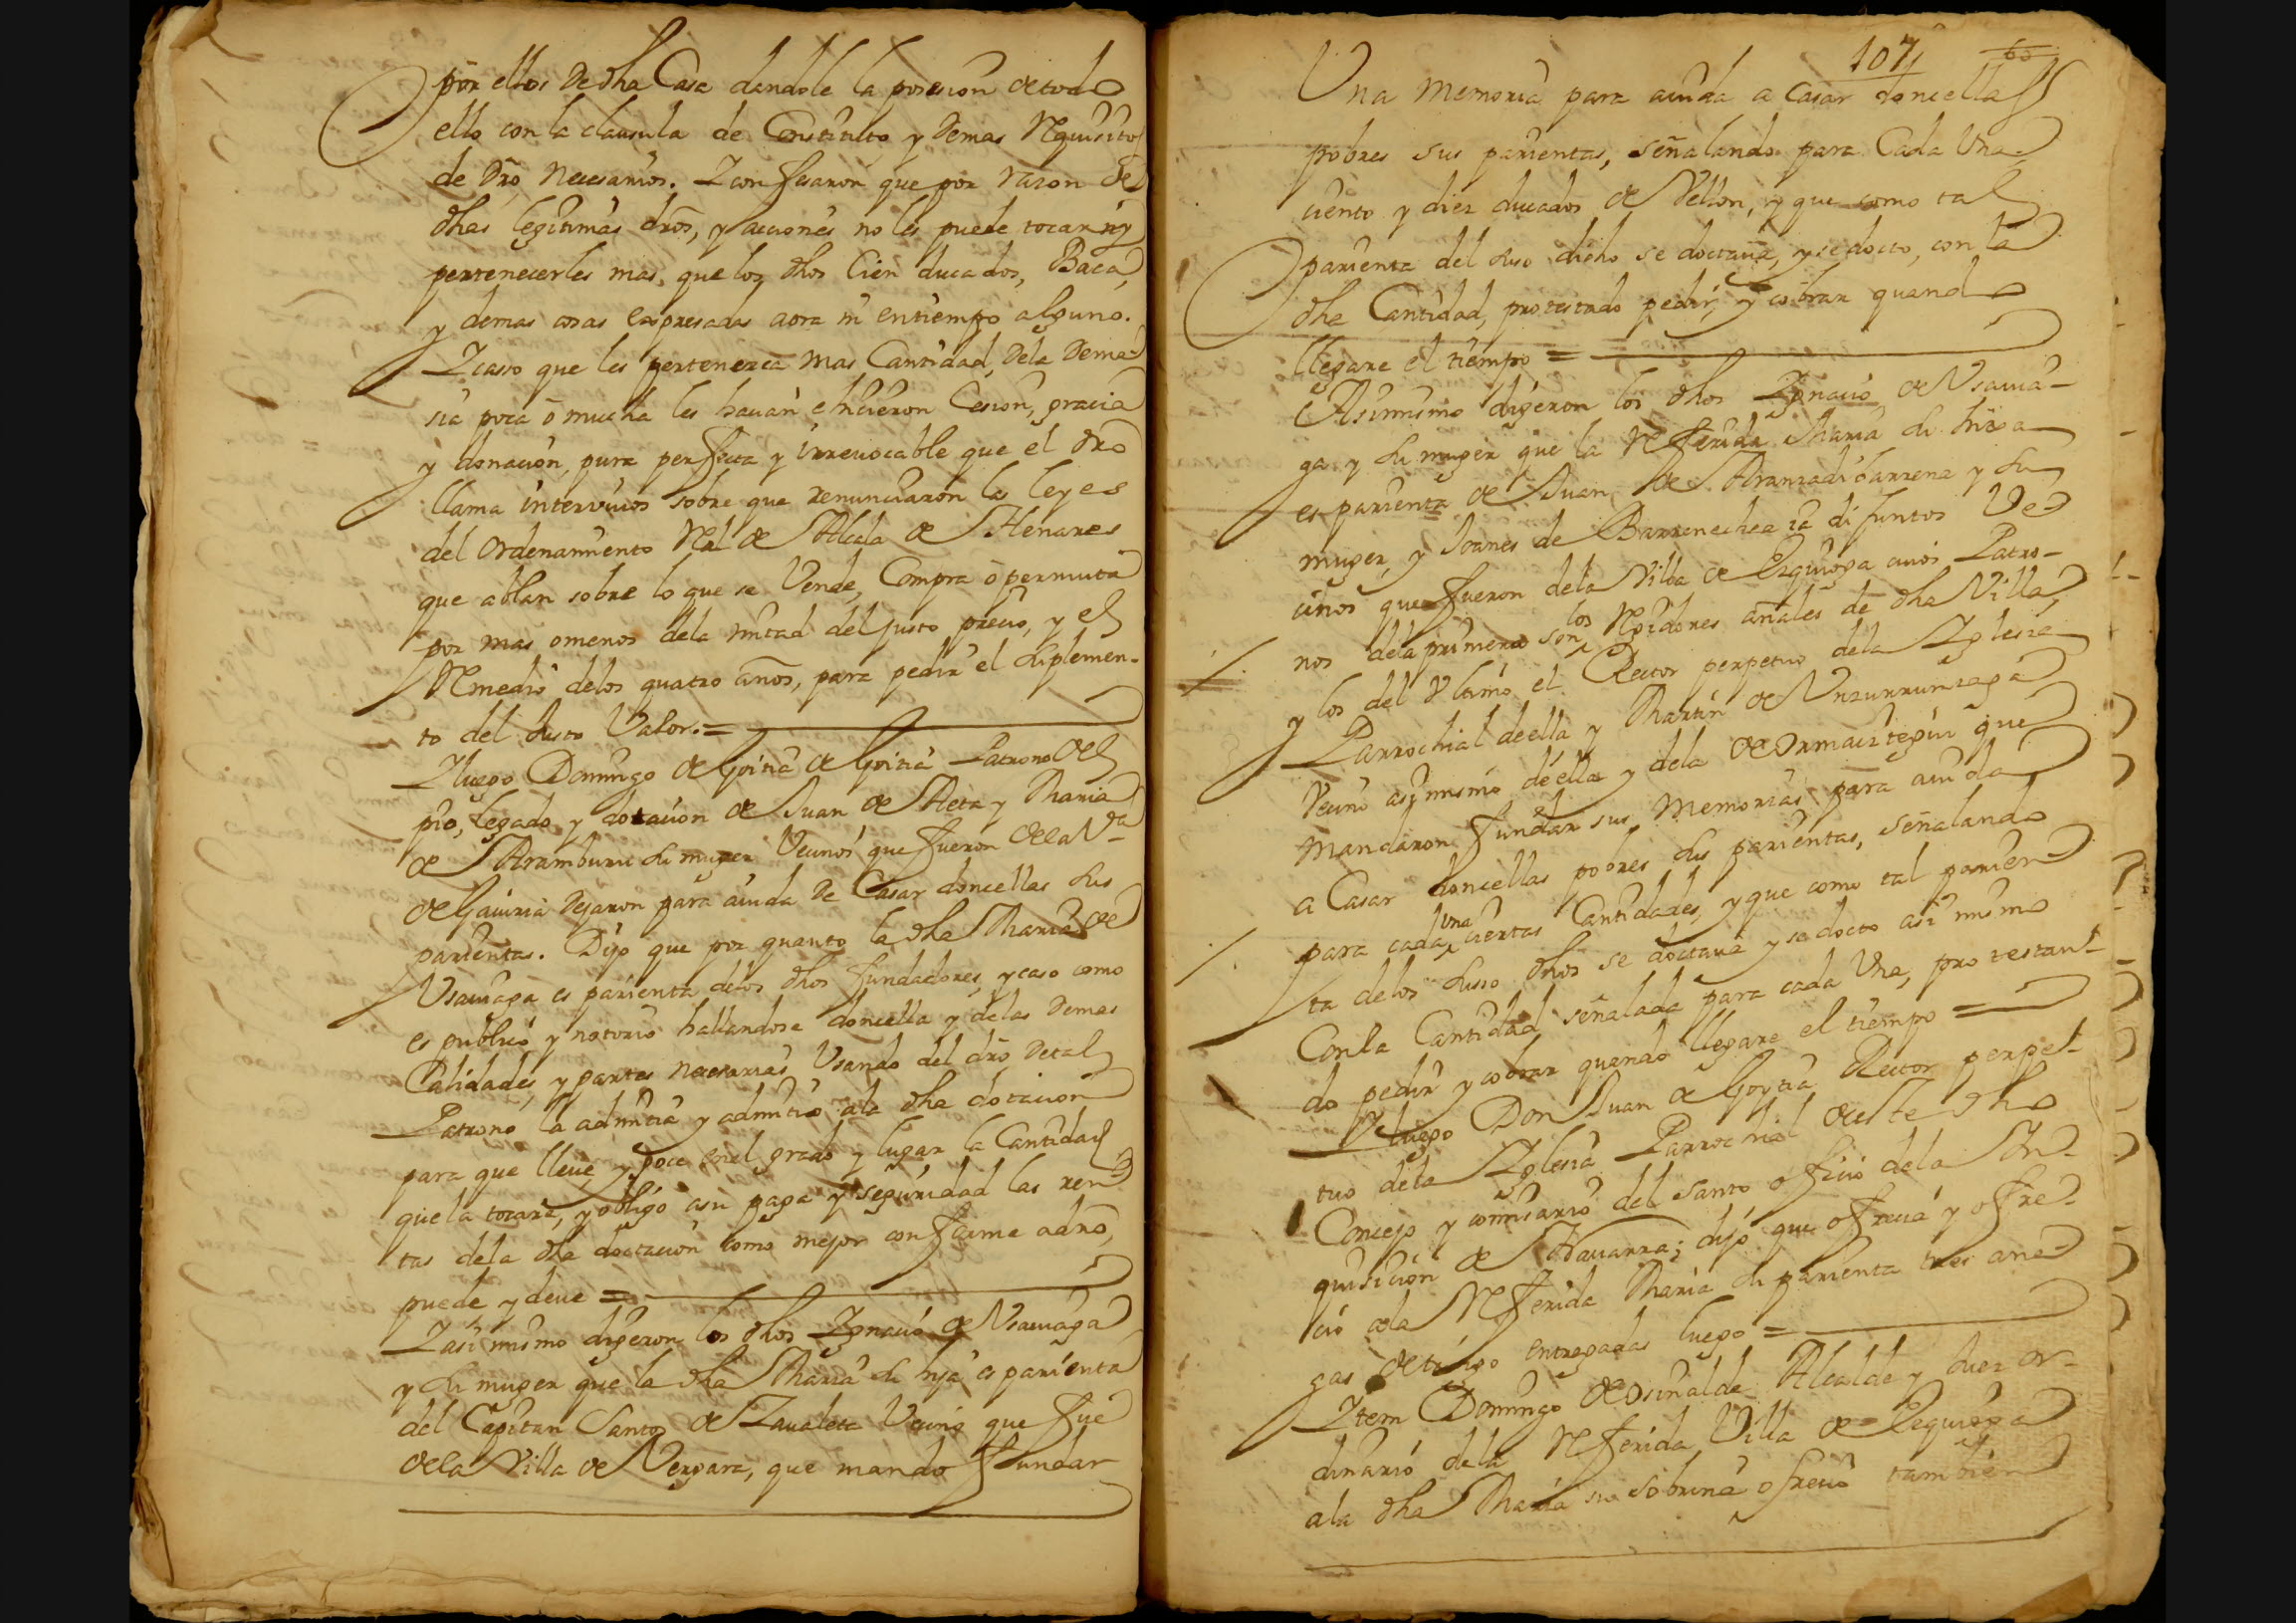 por ellos de dha Casa dandole la posesion de todo
ello con la clausula de Constituto y demas Requisitos
de dro necesarios. I confesaron que por razon de
dhas legitimas dros, y acciones no les puede tocar ny
pertenecerles mas, que los dhos Cien ducados, Baca,
y demas cosas expresadas aora ni en tiempo alguno.
I casso que les pertenezca mas Cantidad, dela dema-
sia poca o mucha les hauian e hicieron Cesion, gracia
y donacion, pura perfecta y irreuocable que el dro
llama interviuos sobre que renunciaron las leyes
del ordenamiento Ral de Alcala de Henares
que ablan sobre lo que se Vende, Compra o permuta
por mas omenos dela mitad del justo precio, y el
Remedio delos quatro años, para pedir el suplemen-
to del susto Valor.=
I luego Domingo de Goitia de Goitia Patrono del
pio, legado, y dotacion de Juan de Aeta y Maria
de Aramburu su muger Vecinos que fueron dela Va
de Gauiria dejaron para aiuda de Casar doncellas sus
parientas. Dijo que por quanto la dha Maria de
Vsauiaga es parienta delos dhos fundadores, y caso como
es publico y notorio hallandose doncella y delas demas
Calidades, y partes necesarias Vsando del dro de tal
Patrono la admitia y admitio ala dha dotacion
para que lleue y goce enel grado y lugar la Cantidad
que la tocare, y obligo asu paga y seguridad las ren-
tas dela dha doctacion como mejor conforme adro,
puede y deue =
I asi mismo digeron los dhos Ignacio de Vsauiaga
y su muger que la dha Maria su hija es parienta
del Capitan Santos de Zaualeta Vecino que fue
dela Villa de Vergara, que mando fundar
107 60
Vna memoria para aiuda a Casar doncellas
pobres sus parientas, señalando para Cada Vna
ciento y diez ducados de Vellon, y que como tal
parienta del suso dicho se doctaua, y se docto, con la
dha Cantidad, protestado pedir, y cobrar quando
llegare el tiempo =
Asimismo digeron los dhos Ignacio de Vsauia-
ga y su muger que la Referida Maria su hija
es parienta de Juan de Aranzadibarrena y su
muger, y Joanes de Barrenechea ia difuntos Ve-
cinos que fueron dela Villa de Ezquioga cuios Patro-
nos dela primera son los Regidores añales de dha Villa,
y los del Vltimo el Rector perpetuo dela Iglesia
Parrochial de ella y Martin de Vnzurrunzaga
Vecino asimismo de ella y dela de Ormaiztegui que
mandaron fundar sus memorias para aiuda
a Casar doncellas pobres sus parientas, señalando
para cada Vna ciertas Cantidades, y que como tal parien-
ta delos suso dhos se doctaua y se docto asi mismo
Con la Cantidad señalada para cada Vna, protestan-
do pedir y cobrar quando llegare el tiempo =
I luego Don Juan de Goitia Rector perpe-
tuo dela Iglesia Parrochial de este dho
Concejo y comisario del santo oficio dela In-
quisicion de Nauarra; dijo que ofrecia y ofre-
cio ala Referida Maria su parienta tres ane-
gas de trigo entregadas luego =
Item Domingo de Osinalde Alcalde y Juez or-
dinario dela Referida Villa de Ezquioga
ala dha Maria su sobrina ofrecio tambien